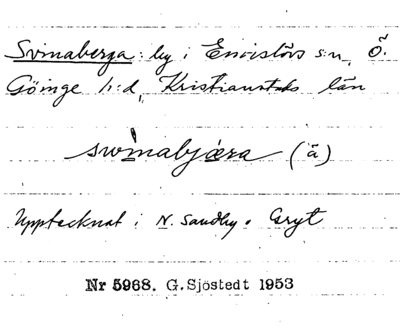 Svinaberga: by i Emislövs s:n, Ö.
Göinge h:d, Kristianstads län
swinabjæra (ä)
Upptecknat i N. Sandby o Gryt
Nr 5968. G. Sjöstedt 1953